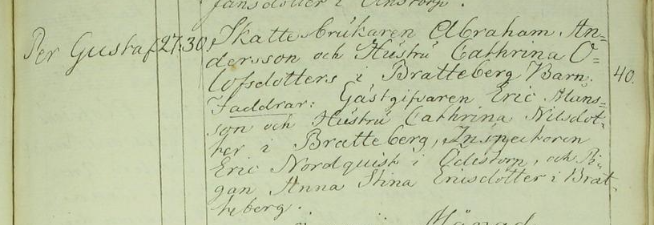 Jansdotter i
Per Gustaf 27. 30. Skattebrukaren Abraham An=
dersson och Hustru Cathrina O=
lofsdotters i Bratteberg Barn. 40.
Faddrar: Gästgifvaren Eric Muns=
son och Hustru Cathrina Nilsdot=
ter i Bratteberg, Inspectoren
Eric Nordquist i Odistorp, och Pi=
gan Anna Stina Ericsdotter i Brat=
teberg.
Månad